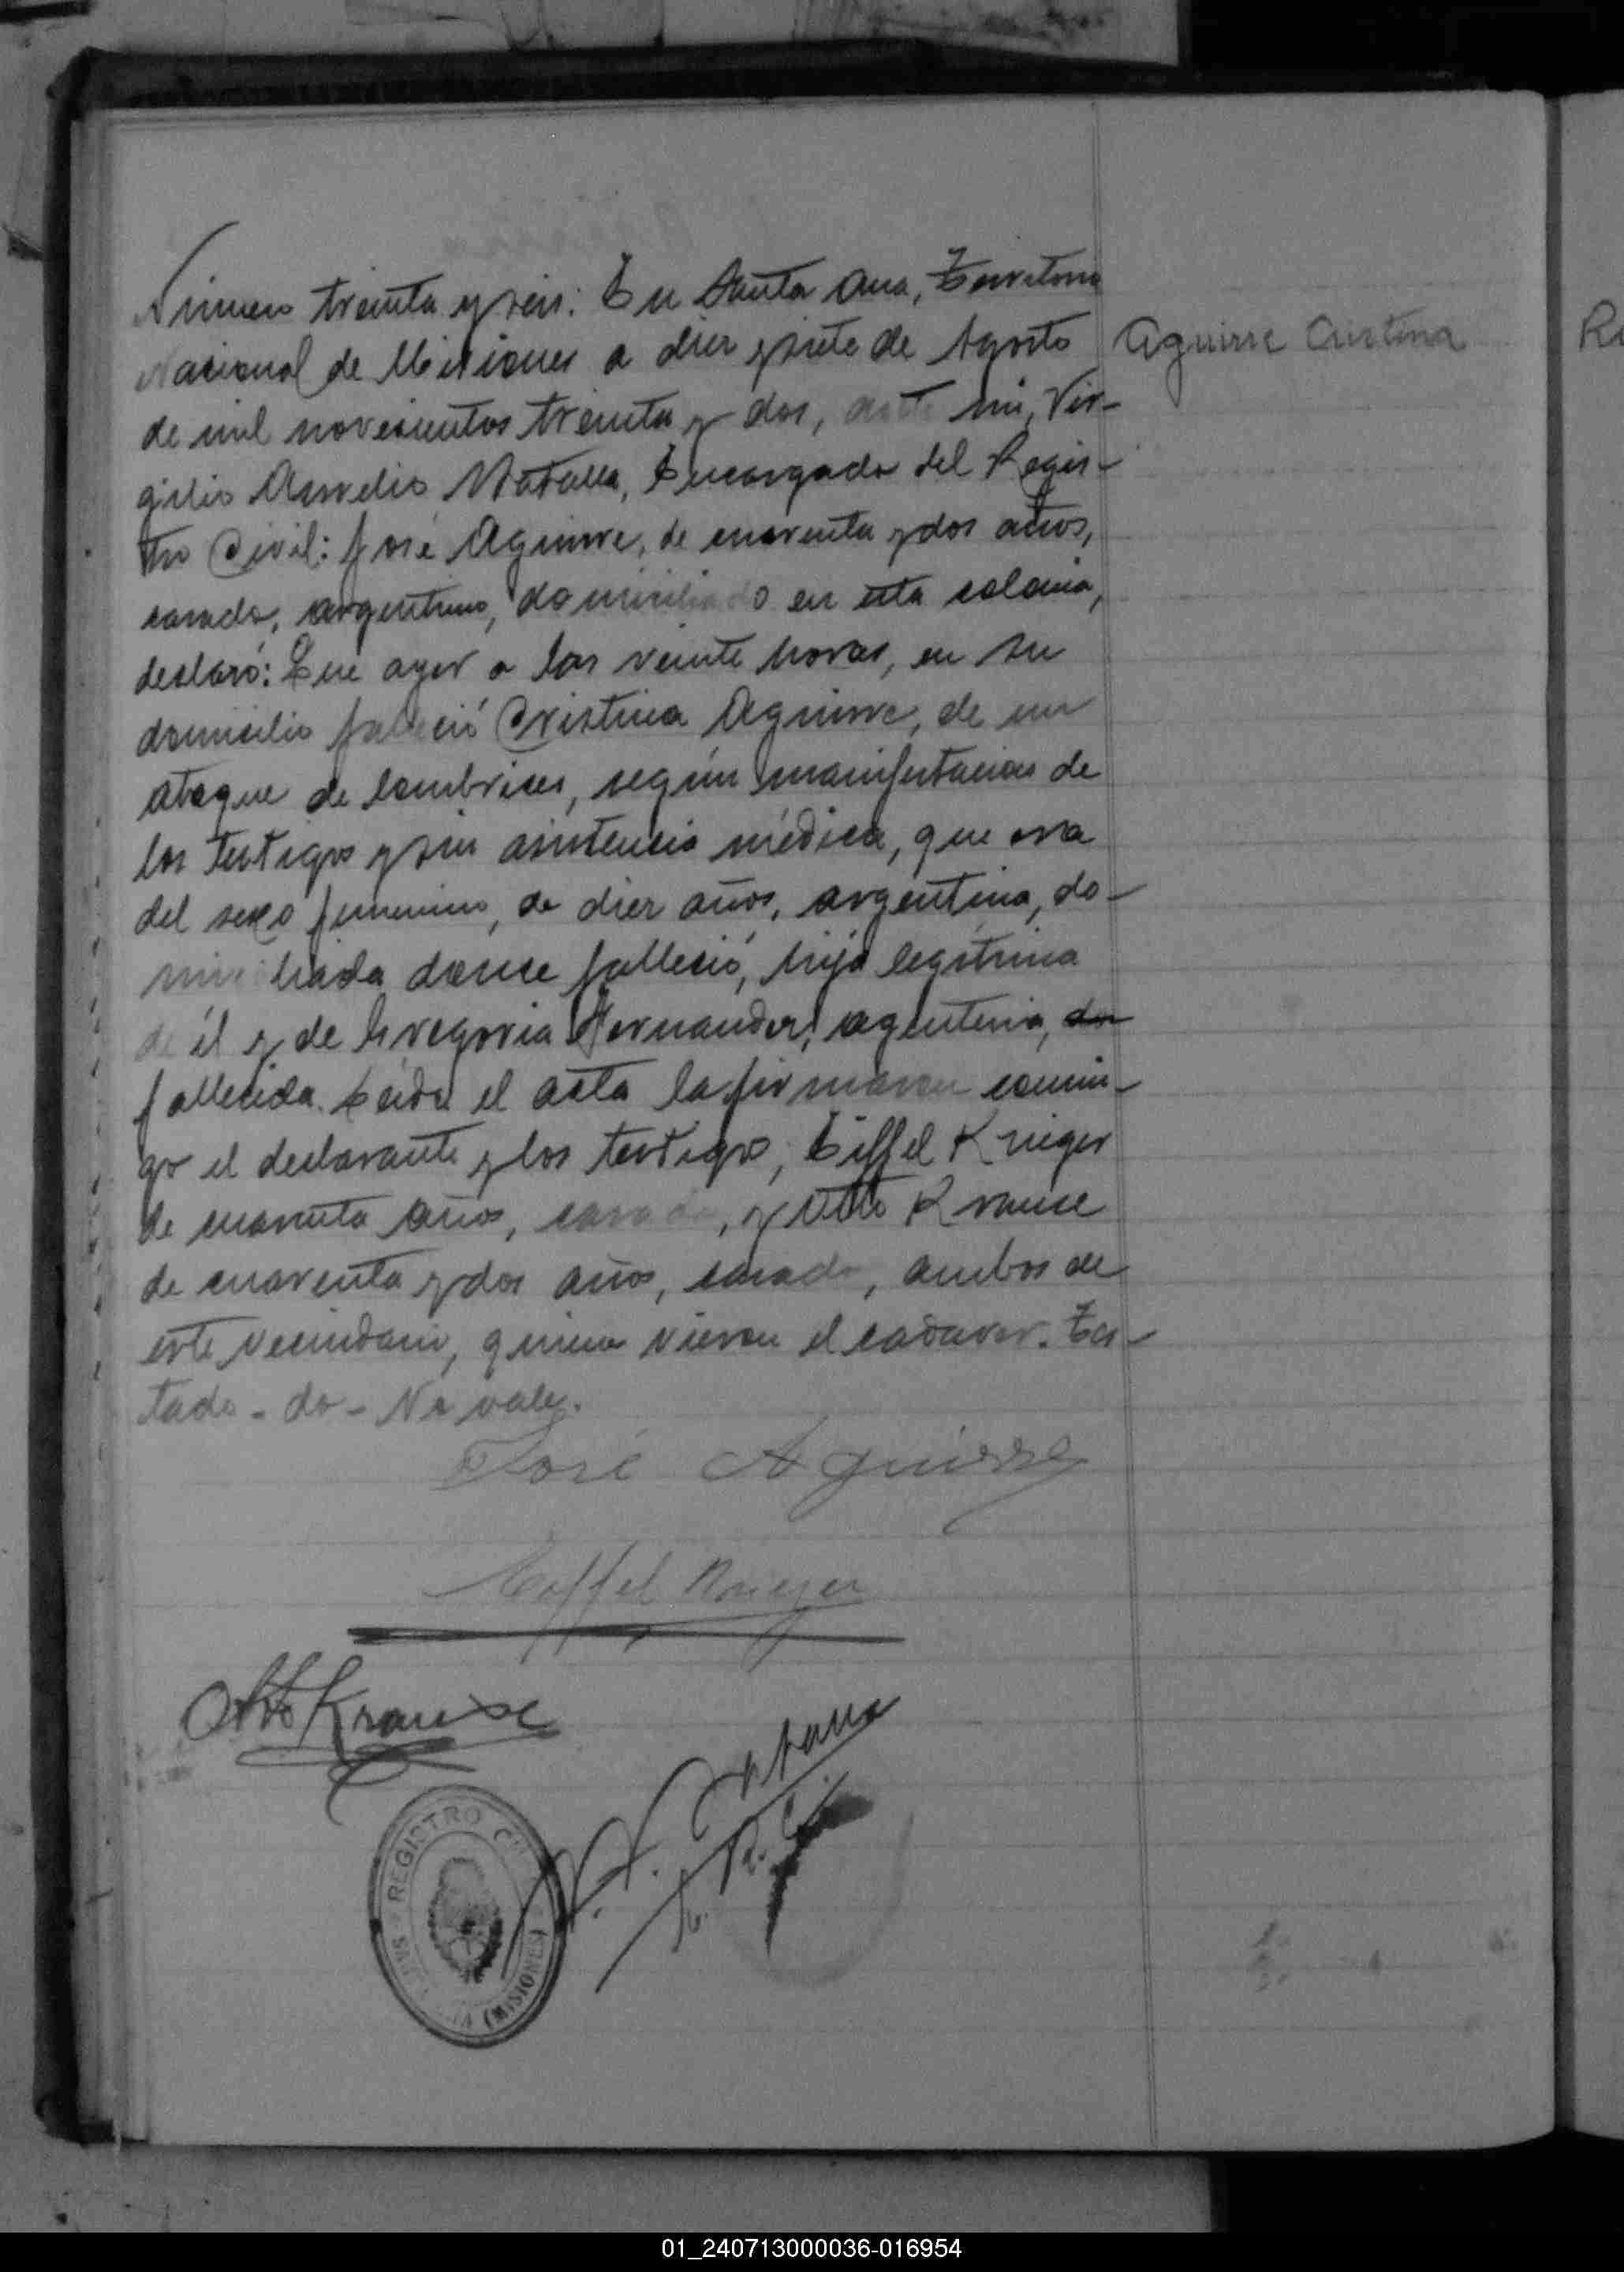 Número treinta y seis: En Santa Ana, Territorio
Nacional de Misiones a diez y siete de Agosto
de mil novecientos treinta y dos, ante mi, Vir-
gilio Aurelio Matalla, Encargado del Regis-
tro Civil: José Aguirre, de cuarenta y dos años,
casado, argentino, domiciliado en esta colonia,
declaró: Que ayer a las veinte horas, en su
domicilio falleció Cristina Aguirre, de un
ataque de lombrices, según manifestacion de
los testigos y sin asistencia médica, que era
del sexo femenino, de diez años, argentina, do-
miciliada donde falleció, hija legítima
de él y de Gregoria Hernandez, agentina, do
fallecida. Leida el acta la firmaron conmi-
go el declarante y los testigos, Eiffel Krieger
de cuarenta años, casado, y Otto Krause
de cuarenta y dos años, casado, ambos de
este vecindario, quienes vieron el cadaver. Tes-
tado - do - No vale.
Aguirre Cristina
José Aguirre
Eiffel Krieger
Otto Krause
REGISTRO CIVIL
(MISIONES)
01_240713000036-016954